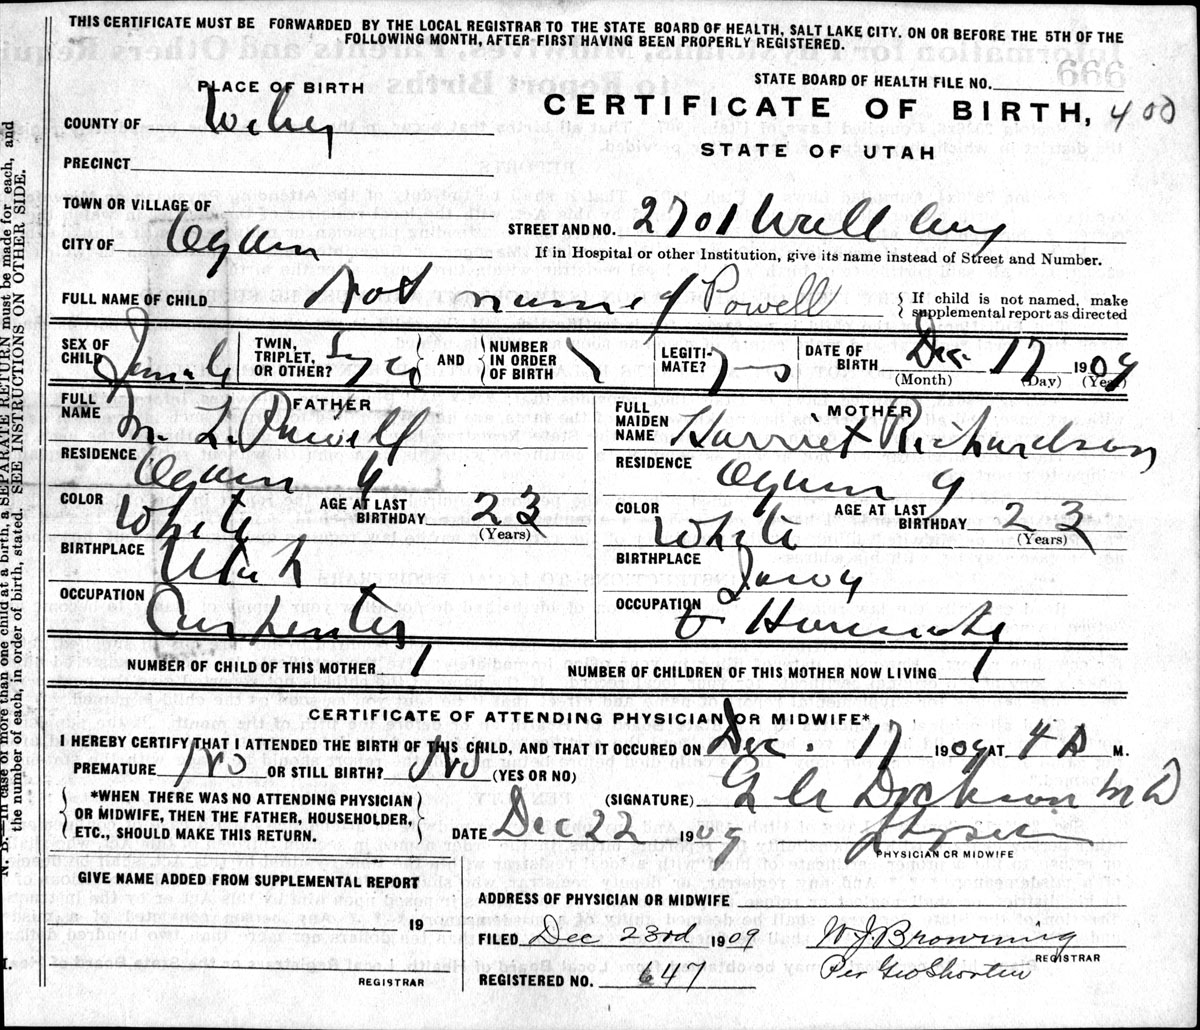 THIS CERTIFICATE MUST BE FORWARDED BY THE LOCAL REGISTRAR TO THE STATE BOARD OF HEALTH, SALT LAKE CITY, ON OR BEFORE THE 5TH OF THE
FOLLOWING MONTH, AFTER FIRST HAVING BEEN PROPERLY REGISTERED.
PLACE OF BIRTH
STATE BOARD OF HEALTH FILE NO.
CERTIFICATE OF BIRTH, 400
COUNTY OF Weber
STATE OF UTAH
PRECINCT
TOWN OR VILLAGE OF
STREET AND NO. 2701 Wall Avy
CITY OF Ogden
If in Hospital or other Institution, give its name instead of Street and Number.
FULL NAME OF CHILD Not named Powell
{ If child is not named, make
supplemental report as directed
SEX OF CHILD Female
TWIN, TRIPLET, OR OTHER? Single } AND { NUMBER IN ORDER OF BIRTH 1
LEGITIMATE?
DATE OF BIRTH Dec. 17 1909
(Month) (Day) (Year)
FATHER
FULL NAME M. L. Powell
RESIDENCE Ogden
COLOR White AGE AT LAST BIRTHDAY 23 (Years)
BIRTHPLACE Utah
OCCUPATION Carpenter
MOTHER
FULL MAIDEN NAME Harriet Richardson
RESIDENCE Ogden
COLOR White AGE AT LAST BIRTHDAY 23 (Years)
BIRTHPLACE
OCCUPATION Housewife
NUMBER OF CHILD OF THIS MOTHER 1
NUMBER OF CHILDREN OF THIS MOTHER NOW LIVING 1
CERTIFICATE OF ATTENDING PHYSICIAN OR MIDWIFE*
I HEREBY CERTIFY THAT I ATTENDED THE BIRTH OF THIS CHILD, AND THAT IT OCCURED ON Dec. 17 1909 AT 4 A M.
PREMATURE No OR STILL BIRTH? No (YES OR NO)
{ *WHEN THERE WAS NO ATTENDING PHYSICIAN
OR MIDWIFE, THEN THE FATHER, HOUSEHOLDER,
ETC., SHOULD MAKE THIS RETURN. }
(SIGNATURE) Dickson MD
DATE Dec 22 1909
Physician
PHYSICIAN OR MIDWIFE
GIVE NAME ADDED FROM SUPPLEMENTAL REPORT
19
REGISTRAR
ADDRESS OF PHYSICIAN OR MIDWIFE
FILED Dec 23rd 1909
W J Browning
REGISTRAR
Per Geo Shorten
REGISTERED NO. 647
N. B.—In case of more than one child at a birth, a SEPARATE RETURN must be made for each, and
the number of each, in order of birth, stated. SEE INSTRUCTIONS ON OTHER SIDE.